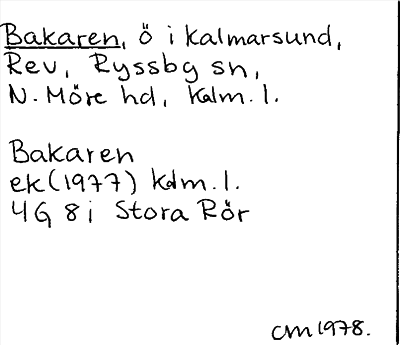 Bakaren, Ö i Kalmarsund,
Rev, Ryssbg sn,
N. Möre hd, Kalm. l.
Bakaren
ek (1977) Kalm. l.
4G 8i Stora Rör
CM 1978.